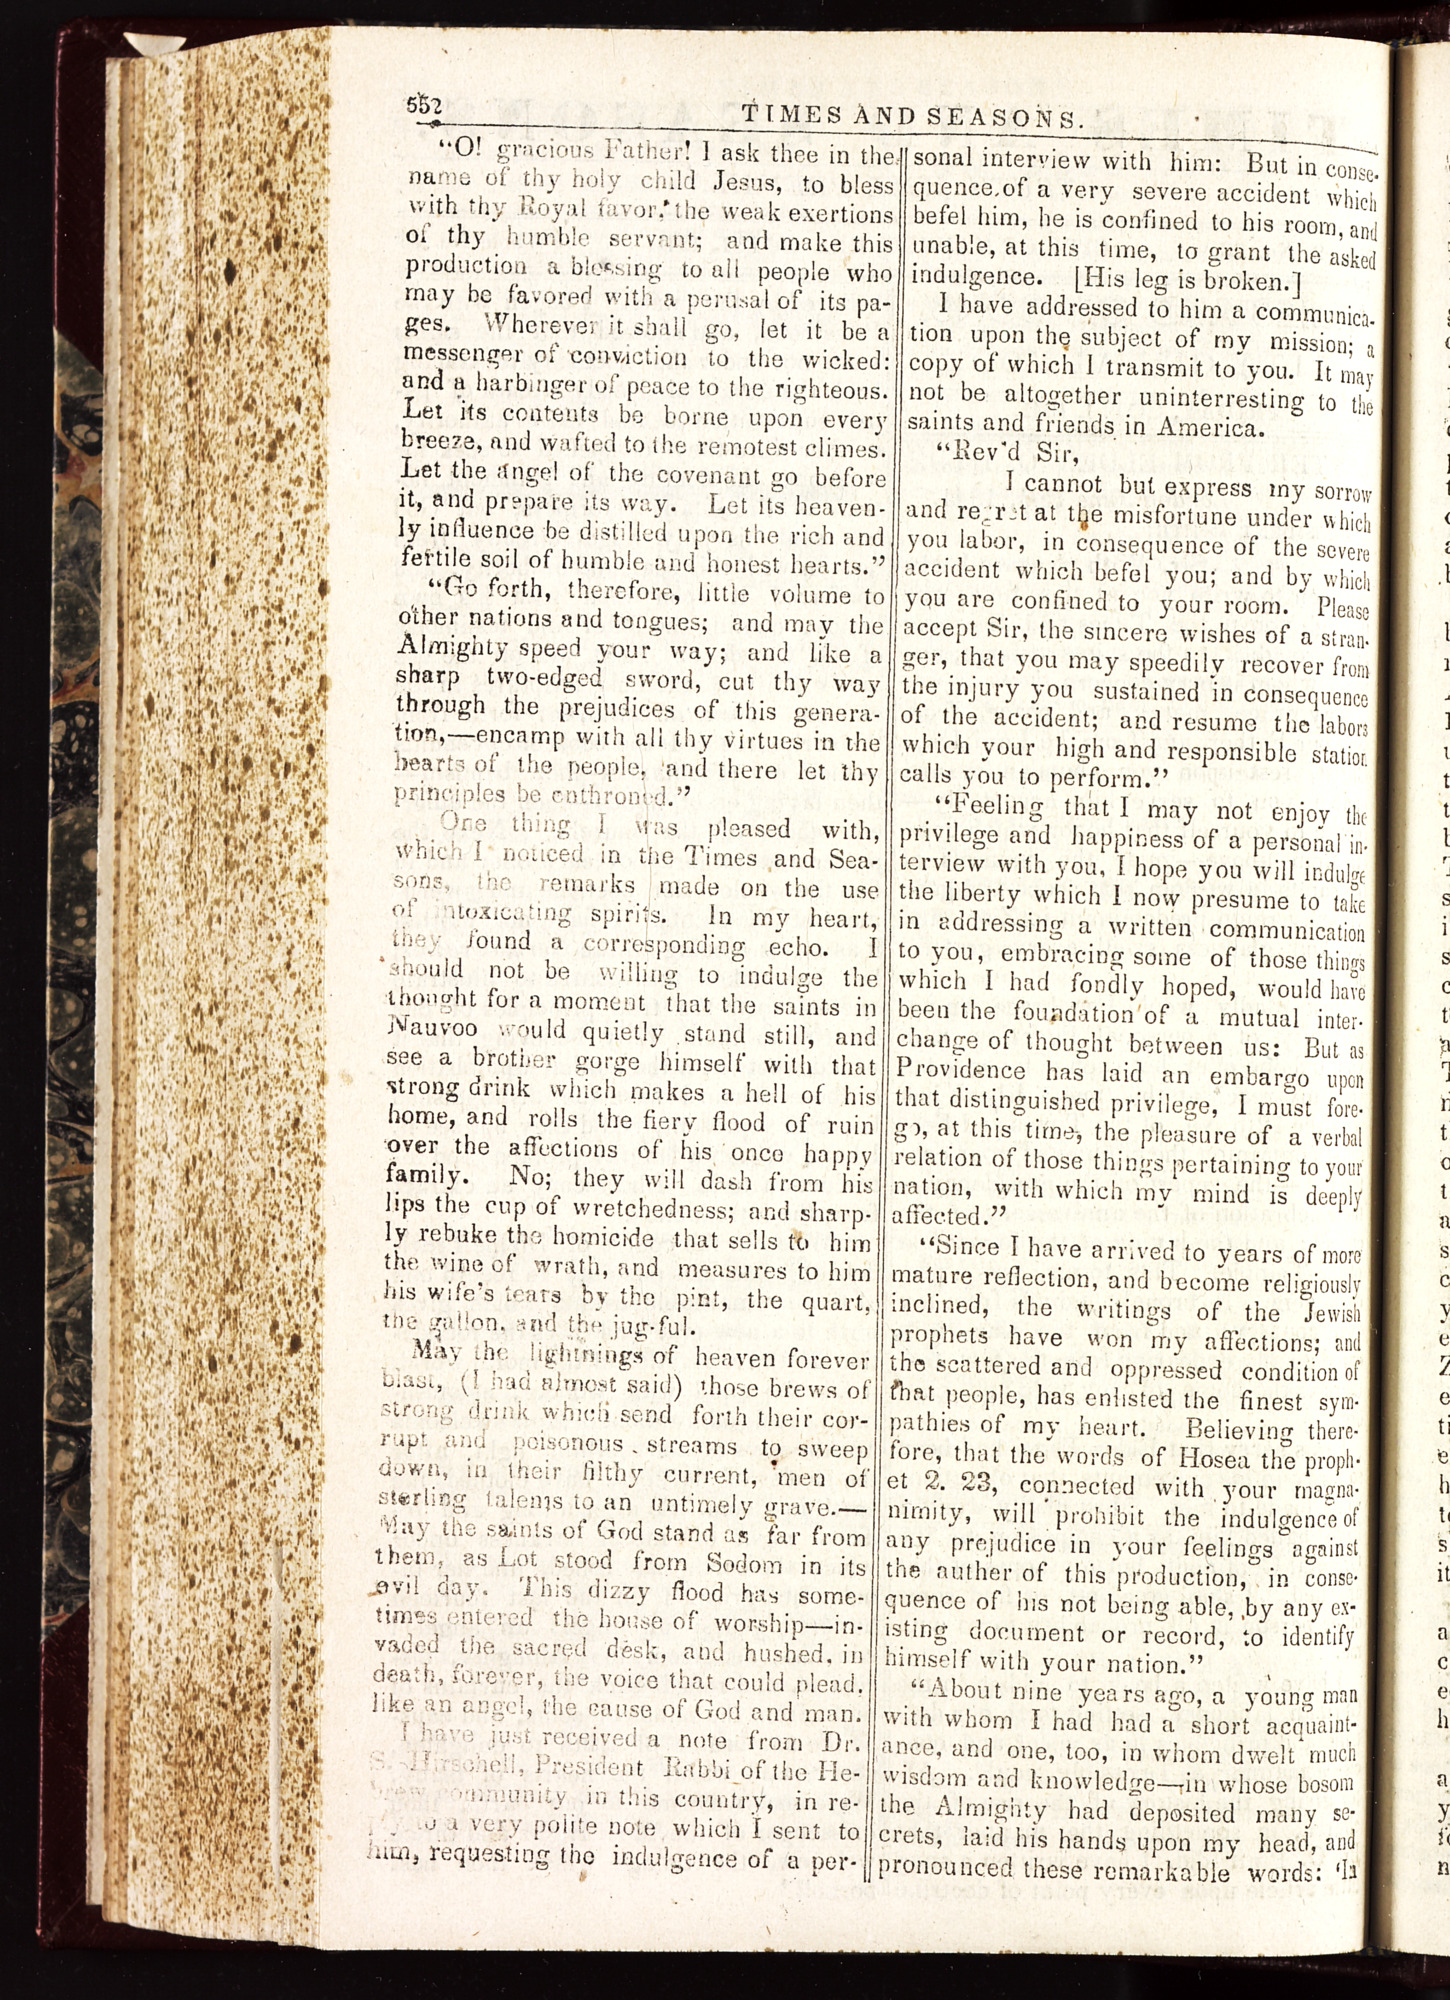 552
TIMES AND SEASONS.
"O! gracious Father! I ask thee in the
name of thy holy child Jesus, to bless
with thy Royal favor, the weak exertions
of thy humble servant; and make this
production a blessing to all people who
may be favored with a perusal of its pa-
ges. Wherever it shall go, let it be a
messenger of conviction to the wicked:
and a harbinger of peace to the righteous.
Let its contents be borne upon every
breeze, and wafted to the remotest climes.
Let the angel of the covenant go before
it, and prepare its way. Let its heaven-
ly influence be distilled upon the rich and
fertile soil of humble and honest hearts."
"Go forth, therefore, little volume to
other nations and tongues; and may the
Almighty speed your way; and like a
sharp two-edged sword, cut thy way
through the prejudices of this genera-
tion,—encamp with all thy virtues in the
hearts of the people, and there let thy
principles be enthroned."
One thing I was pleased with,
which I noticed in the Times and Sea-
sons, the remarks made on the use
of intoxicating spirits. In my heart,
they found a corresponding echo. I
should not be willing to indulge the
thought for a moment that the saints in
Nauvoo would quietly stand still, and
see a brother gorge himself with that
strong drink which makes a hell of his
home, and rolls the fiery flood of ruin
over the affections of his once happy
family. No; they will dash from his
lips the cup of wretchedness; and sharp-
ly rebuke the homicide that sells to him
the wine of wrath, and measures to him
his wife's tears by the pint, the quart,
the gallon, and the jug-ful.
May the lightnings of heaven forever
blast, (I had almost said) those brews of
strong drink which send forth their cor-
rupt and poisonous streams to sweep
down, in their filthy current, men of
sterling talents to an untimely grave.—
May the saints of God stand as far from
them, as Lot stood from Sodom in its
evil day. This dizzy flood has some-
times entered the house of worship—in-
vaded the sacred desk, and hushed, in
death, forever, the voice that could plead,
like an angel, the cause of God and man.
I have just received a note from Dr.
S. Hirschell, President Rabbi of the He-
brew community in this country, in re-
ply to a very polite note which I sent to
him, requesting the indulgence of a per-
sonal interview with him: But in conse-
quence of a very severe accident which
befel him, he is confined to his room, and
unable, at this time, to grant the asked
indulgence. [His leg is broken.]
I have addressed to him a communica-
tion upon the subject of my mission; a
copy of which I transmit to you. It may
not be altogether uninterresting to the
saints and friends in America.
"Rev'd Sir,
I cannot but express my sorrow
and regret at the misfortune under which
you labor, in consequence of the severe
accident which befel you; and by which
you are confined to your room. Please
accept Sir, the sincere wishes of a stran-
ger, that you may speedily recover from
the injury you sustained in consequence
of the accident; and resume the labors
which your high and responsible station
calls you to perform."
"Feeling that I may not enjoy the
privilege and happiness of a personal in-
terview with you, I hope you will indulge
the liberty which I now presume to take
in addressing a written communication
to you, embracing some of those things
which I had fondly hoped, would have
been the foundation of a mutual inter-
change of thought between us: But as
Providence has laid an embargo upon
that distinguished privilege, I must fore-
go, at this time, the pleasure of a verbal
relation of those things pertaining to your
nation, with which my mind is deeply
affected."
"Since I have arrived to years of more
mature reflection, and become religiously
inclined, the writings of the Jewish
prophets have won my affections; and
the scattered and oppressed condition of
that people, has enlisted the finest sym-
pathies of my heart. Believing there-
fore, that the words of Hosea the proph-
et 2. 23, connected with your magna-
nimity, will prohibit the indulgence of
any prejudice in your feelings against
the auther of this production, in conse-
quence of his not being able, by any ex-
isting document or record, to identify
himself with your nation."
"About nine years ago, a young man
with whom I had had a short acquaint-
ance, and one, too, in whom dwelt much
wisdom and knowledge—in whose bosom
the Almighty had deposited many se-
crets, laid his hands upon my head, and
pronounced these remarkable words: 'In